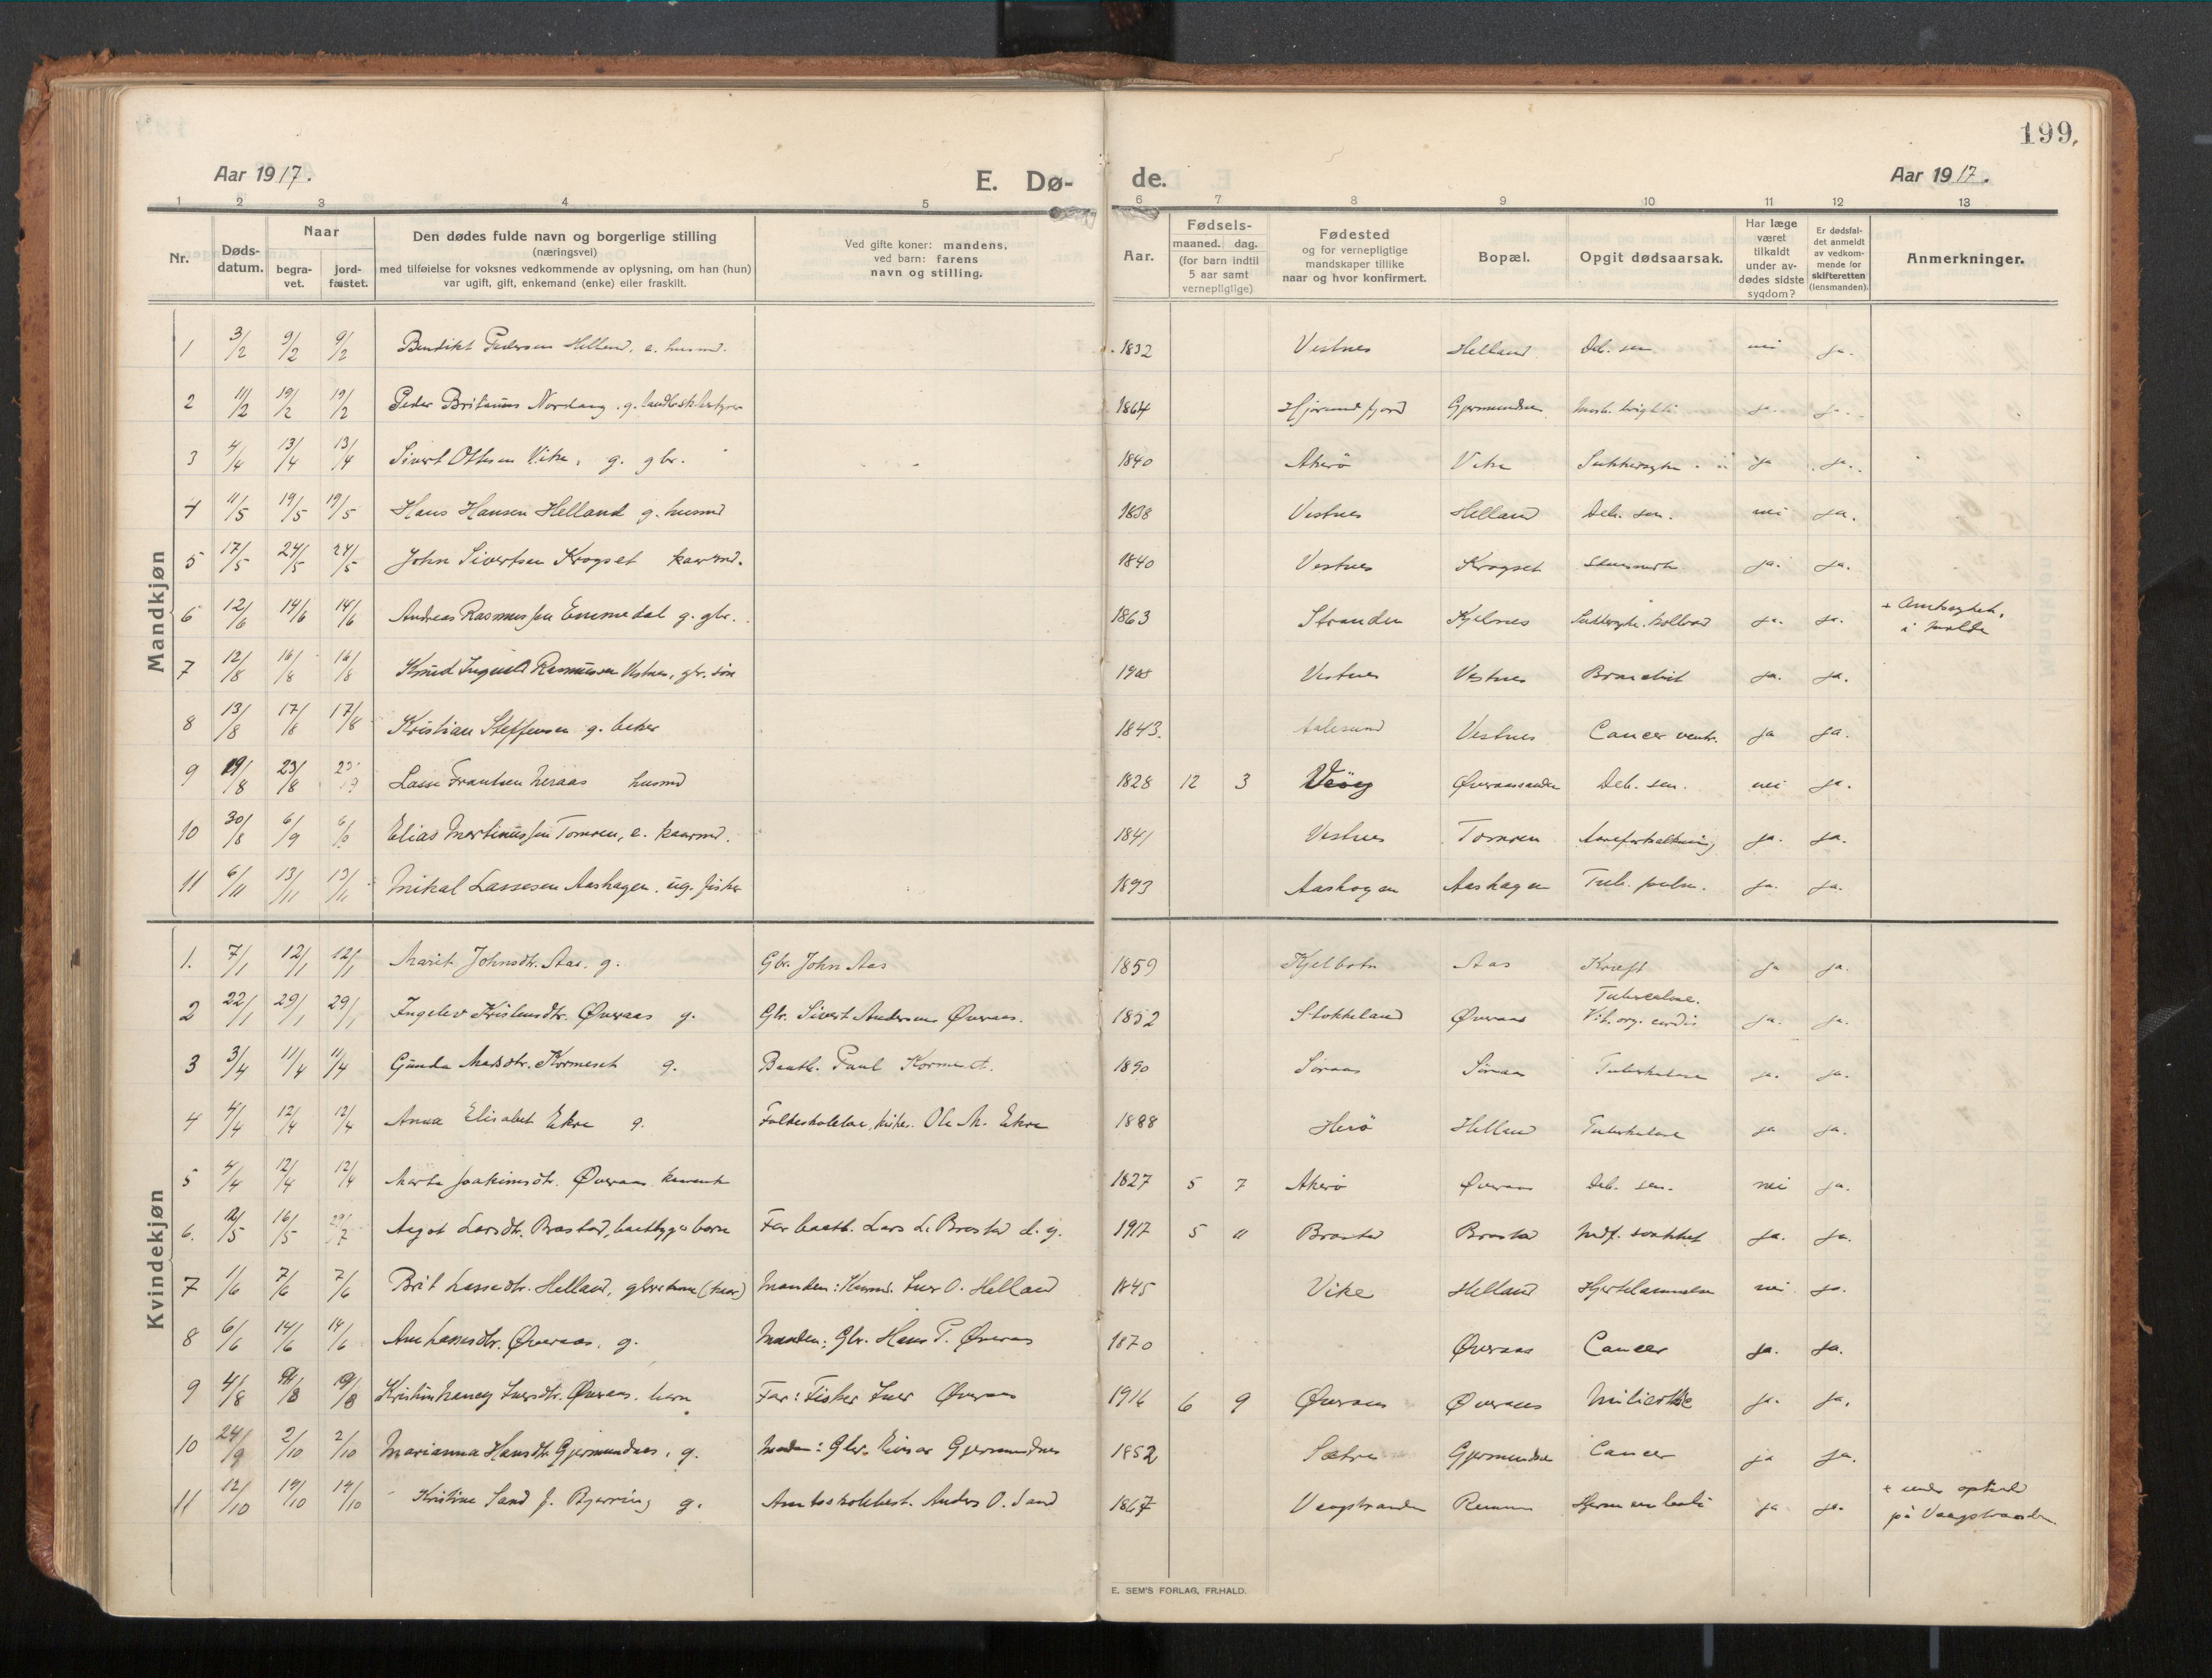 199.
Aar 1917.
E. Dø-
de.
Aar 1917.
1 2 3 4 5 6 7 8 9 10 11 12 13
Nr. Døds-datum. Naar begra-vet. jord-fæstet. Den dødes fulde navn og borgerlige stilling (næringsvei) med tilføielse for voksnes vedkommende av oplysning, om han (hun) var ugift, gift, enkemand (enke) eller fraskilt. Ved gifte koner: mandens, ved barn: farens navn og stilling. Aar. Fødsels- maaned. dag. (for barn indtil 5 aar samt vernepligtige) Fødested og for vernepligtige mandskaper tillike naar og hvor konfirmert. Bopæl. Opgit dødsaarsak. Har læge været tilkaldt under av-dødes sidste sygdom? Er dødsfal-det anmeldt av vedkom-mende for skifteretten (lensmanden). Anmerkninger.
Mandkjøn
1 3/2 9/2 9/2 Bendikt Pedersen Helland, e. husmd. 1832 Vestnes Helland Deb. sen. nei ja.
2 11/2 19/2 19/2 Peder Nordang g. 1864 Hjørundfjord Gjermundnes ja. ja.
3 4/4 13/4 13/4 Sivert Othsen Vike, g. gbr. 1840 Akerø Vike Sukkersyke ja ja.
4 11/5 19/5 19/5 Hans Hansen Helland g. husmd 1838 Vestnes Helland Deb. sen. nei ja.
5 17/5 24/5 24/5 John Sivertsen Krogset kaarmd. 1840 Vestnes Krogset ja. ja.
6 12/6 14/6 14/6 Andreas Rasmussen Emmedal g. gbr. 1863 Stranden Kjelnes Sukkersyke. ja. ja. + Amtssykeh. i Molde
7 12/8 16/8 16/8 Knud Ingvald Rasmussen Vestnes, gbr. søn Vestnes Vestnes ja. ja.
8 13/8 17/8 17/8 Kristian Steffensen g. beker 1843. Aalesund Vestnes Cancer ventr. ja ja.
9 19/8 23/8 Lasse Frantsen Neraas husmd 1828 12 3 Veøy Øveraassanden Deb. sen. nei ja.
10 30/8 6/9 6/9 Elias Martinussen Tomren, e. kaarmd. 1841 Vestnes Tomren Aareforkalkning ja. ja.
11 6/11 13/11 13/11 Mikal Lassesen Aashagen, ug. fisker 1893 Aashagen Aashagen Tub. pulm. ja. ja.
Kvindekjøn
1. 7/1 12/1 12/1 Marit Johnsdtr. Aas, g. Gbr. John Aas 1859 Kjelbotn Aas Kræft ja ja.
2 22/1 29/1 29/1 Ingelev Øveraas g. Gbr. Sivert Andersen Øveraas. 1852 Stokkeland Øveraas Tuberculose. Vit. org. cordis ja. ja.
3 3/4 11/4 11/4 Gunda Madsdtr. Kormeset g. Baatb. Paul Kormeset. 1890 Søraas Søraas Tuberkulose ja. ja.
4 4/4 12/4 12/4 Anna Elisabet Ekre g. Ole M. Ekre 1888 Herø Helland Tuberkulose ja ja.
5 4/4 12/4 12/4 Marta Joakimsdtr. Øveraas 1827 5 7 Akerø Øveraas Deb. sen. nei ja.
6. 12/5 16/5 29/7 Aagot Larsdtr. Brastad, baatbygg. barn Far baatb. Lars L. Brastad d. y. 1917 5 " Brastad Brastad Medf. svakhet ja. ja.
7 1/6 7/6 7/6 Brit Lassedtr. Helland, (kaar) Manden: Iver O. Helland 1845 Vike Helland Hjertelammelse nei ja.
8 6/6 14/6 14/6 Ane Øveraas, g. Manden: Gbr. Hans P. Øveraas 1870 Øveraas Cancer ja. ja.
9 4/8 /8 /8 Kristine Nancy Iversdtr. Øveraas, barn Far: Fisker Iver Øveraas 1916 6 9 Øveraas Øveraas ja. ja.
10 24/9 2/10 2/10 Marianna Hansdtr Gjermundnes, g. Gbr. Einar Gjermundnes 1852 Sætre Gjermundnes Cancer ja ja.
11 12/10 19/10 19/10 Kristine Sand f. Bjerring g. Anders O. Sand 1867 Vaagstranden ja ja. + under ophold på Vaagstranden.
E. SEM'S FORLAG, FR.HALD.